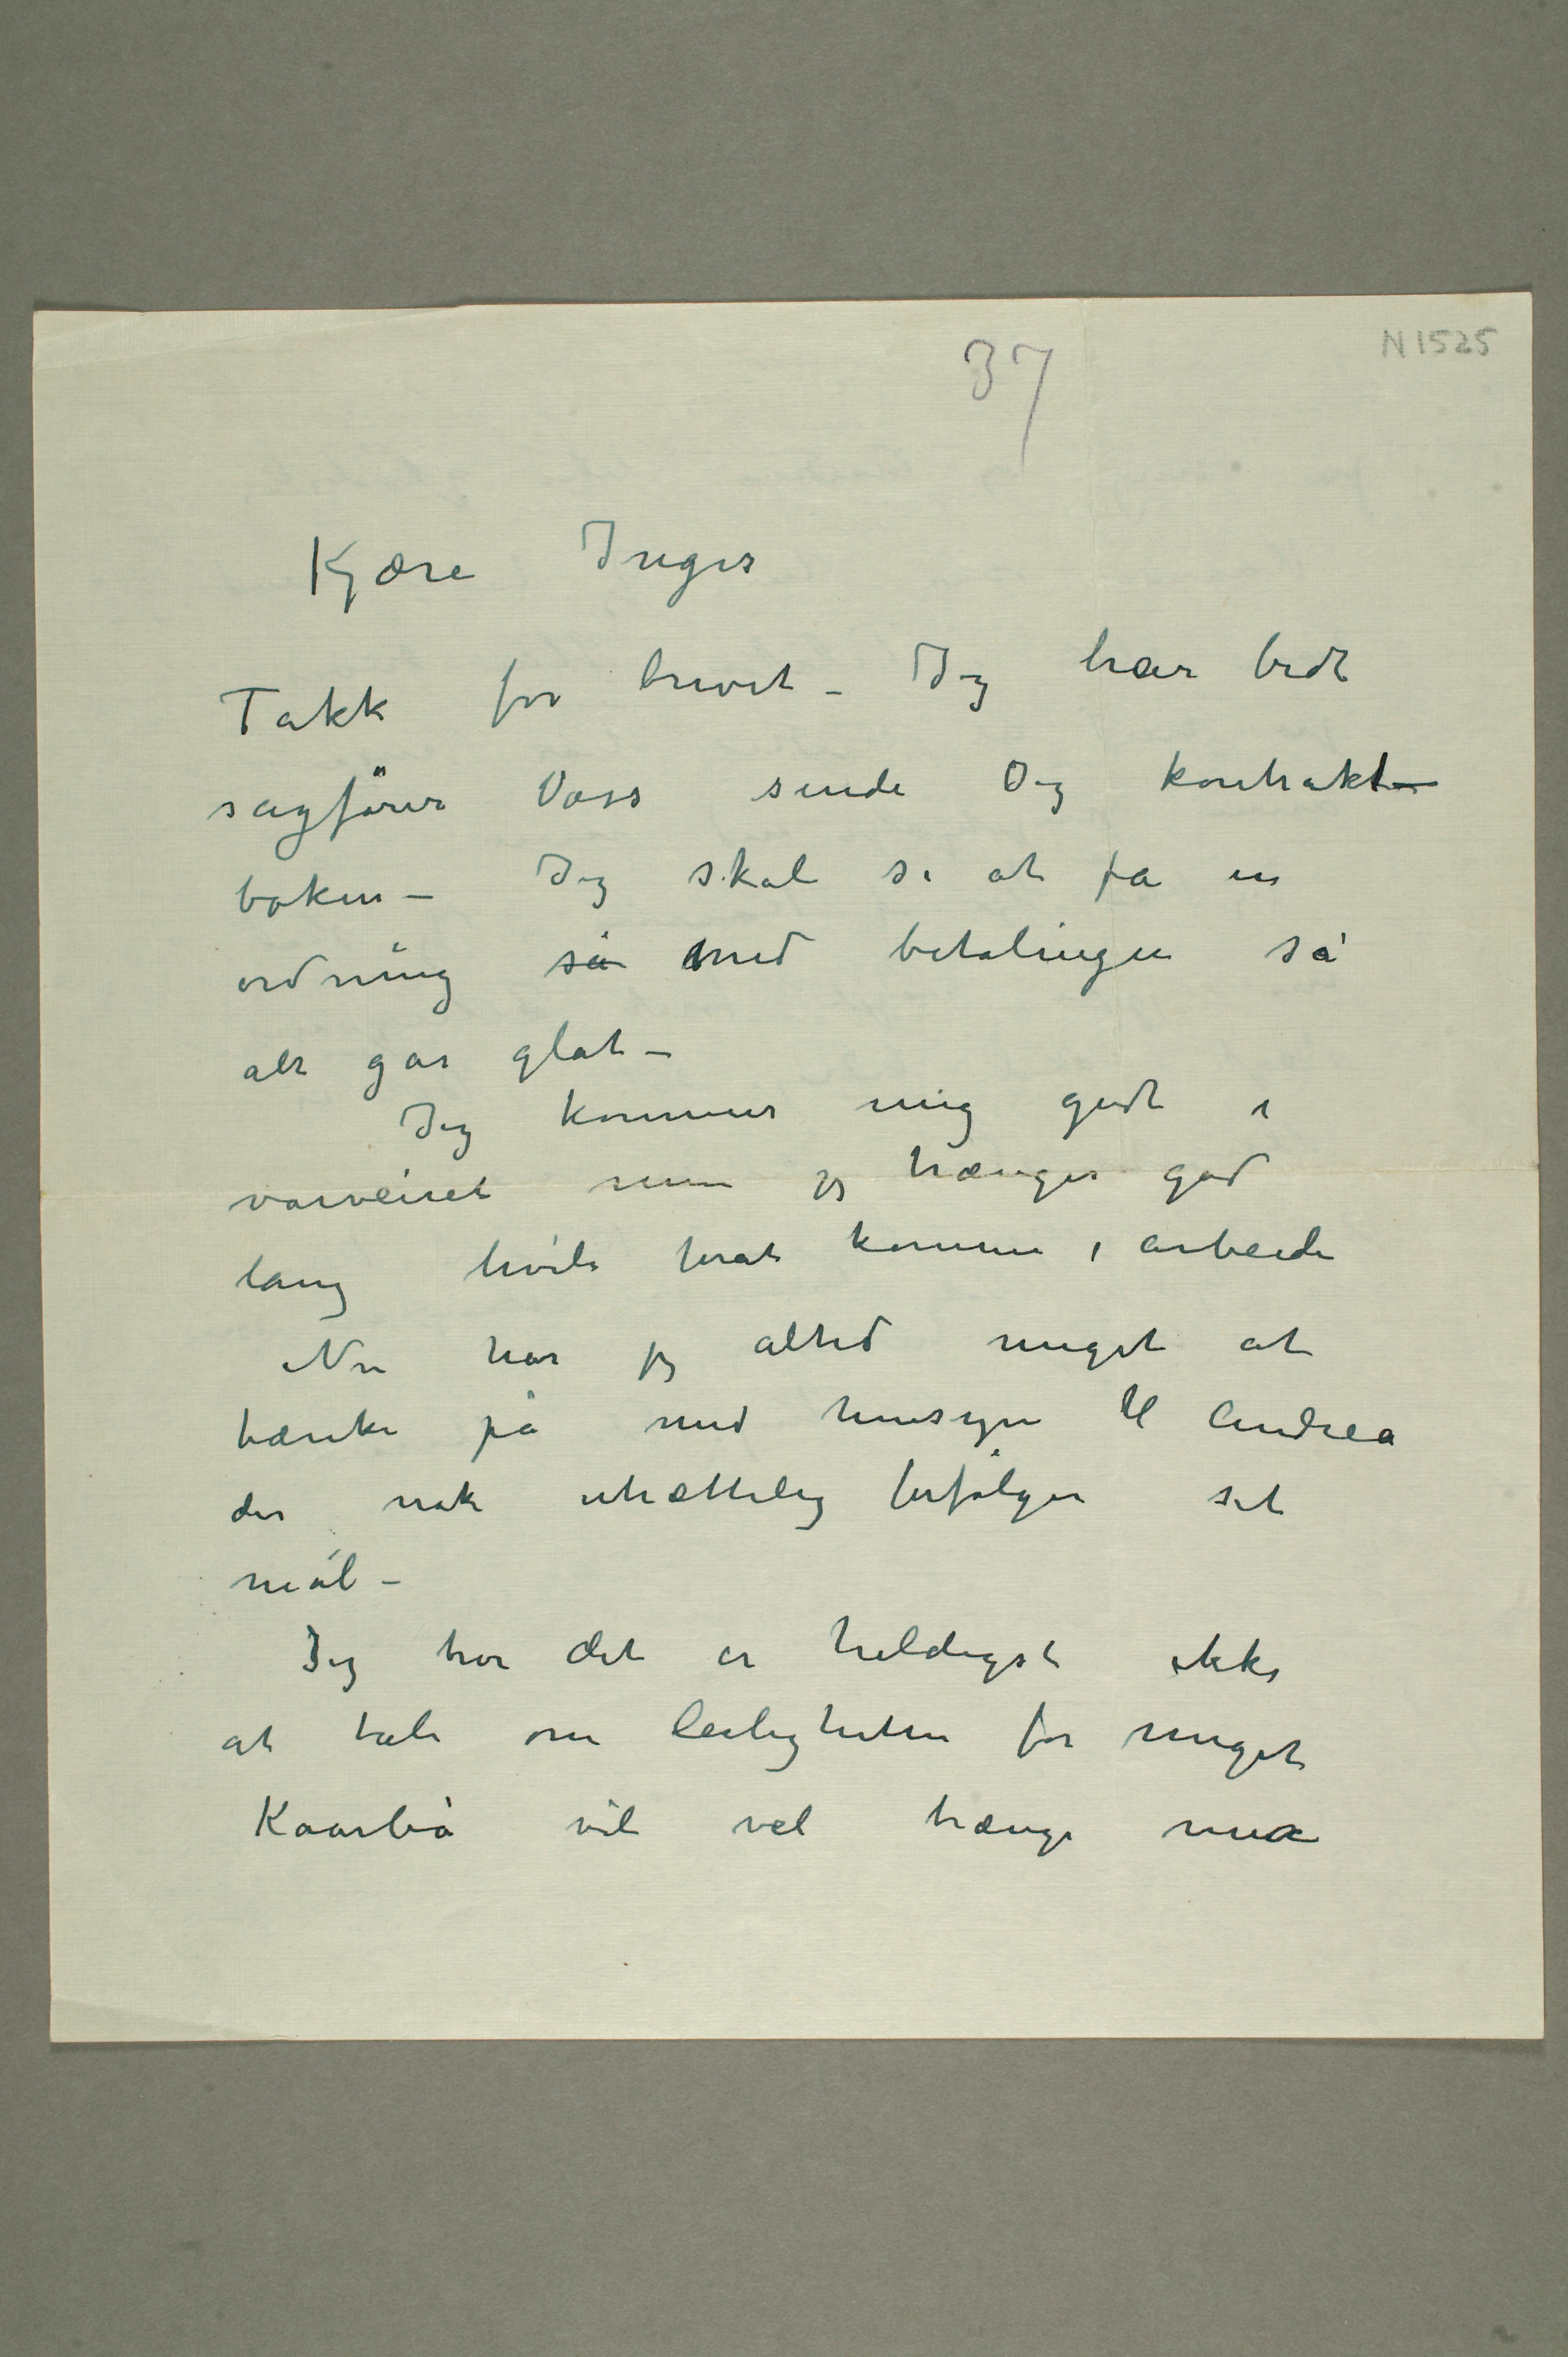 N 1525
37
Kjære Inger
Takk for brevet – Jeg har bedt
sagfører Voss sende Dig kontrakt-
boken – Jeg skal se at få en
ordning så med betalingen så
alt går glat –
Jeg kommer mig godt i
varveiret men jeg trænger god
lang hvile forat komme i arbeide
Nu har jeg altid meget at
tænke på med hensyn til Andrea
der nok utrættelig forfølger sit
mål –
Jeg tror det er heldigst ikke
at tale om leiligheten for meget
Kaarbø vil vel trænge mer